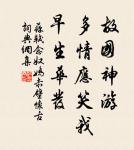 故國神游
多情應笑我
早生華發
蘇軾念奴嬌赤壁懷古
詞典網集